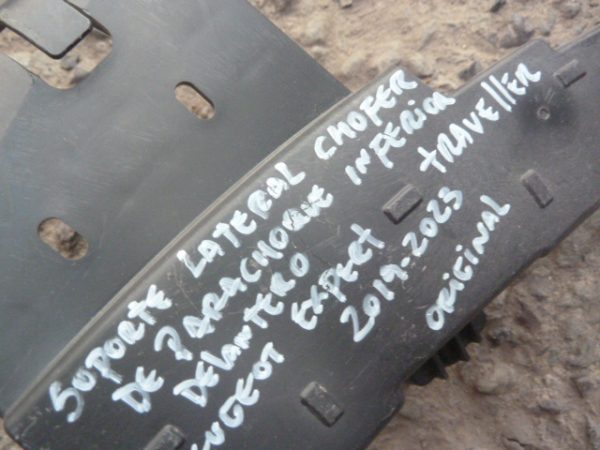 SUPORTE LATERAL CHOFER
DE PARACHOQUE INFERIOR
DELANTERO
EXPERT TRAVELLER
2019-2023
ORIGINAL